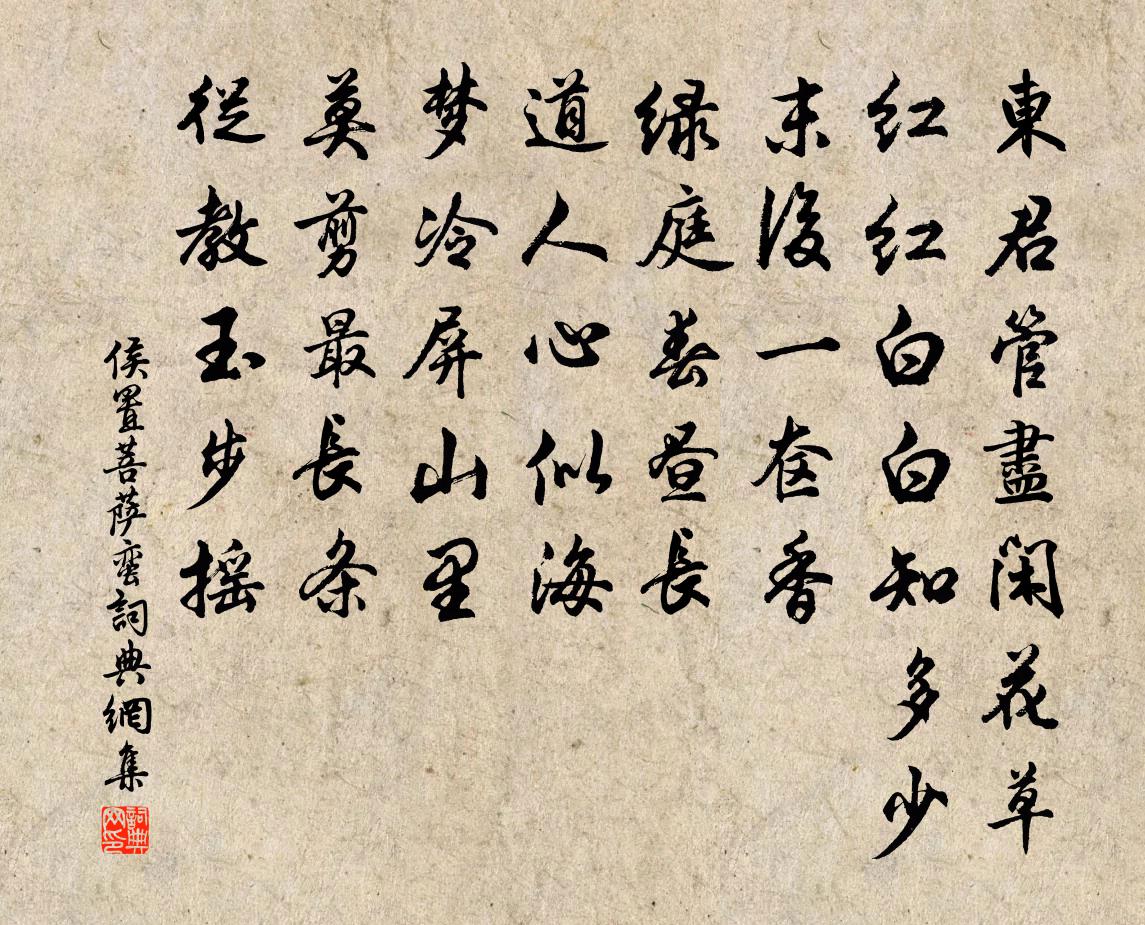 東君管盡閑花草
红红白白知多少
末後一奁香
緑庭春昼長
道人心似海
梦冷屏山里
莫剪最長条
從教玉步摇
侯置菩萨蛮詞典網集
詞典網印